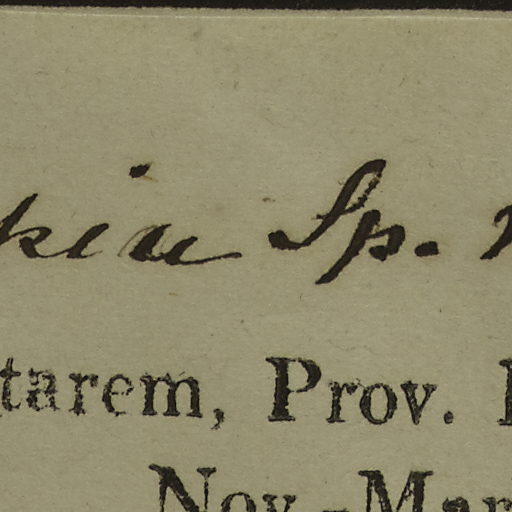 kia Sp.
tarem, Prov.
Nov.-Mar